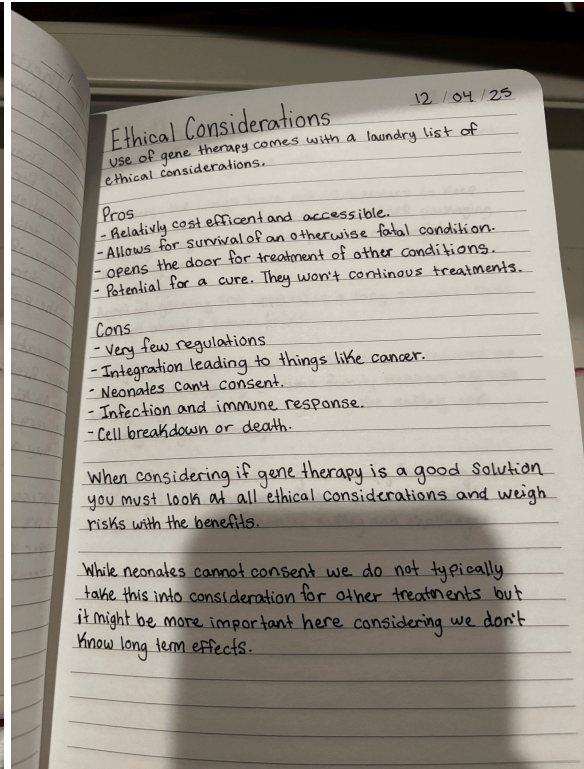 12/04/25
Ethical Considerations
use of gene therapy comes with a laundry list of
ethical considerations.
Pros
- Relativly cost efficent and accessible.
- Allows for survival of an otherwise fatal condition.
- opens the door for treatment of other conditions.
- Potential for a cure. They won't continous treatments.
Cons
- Very few regulations
- Integration leading to things like cancer.
- Neonates can't consent.
- Infection and immune response.
- Cell breakdown or death.
When considering if gene therapy is a good solution
you must look at all ethical considerations and weigh
risks with the benefits.
While neonates cannot consent we do not typically
take this into consideration for other treatments but
it might be more important here considering we don't
know long term effects.